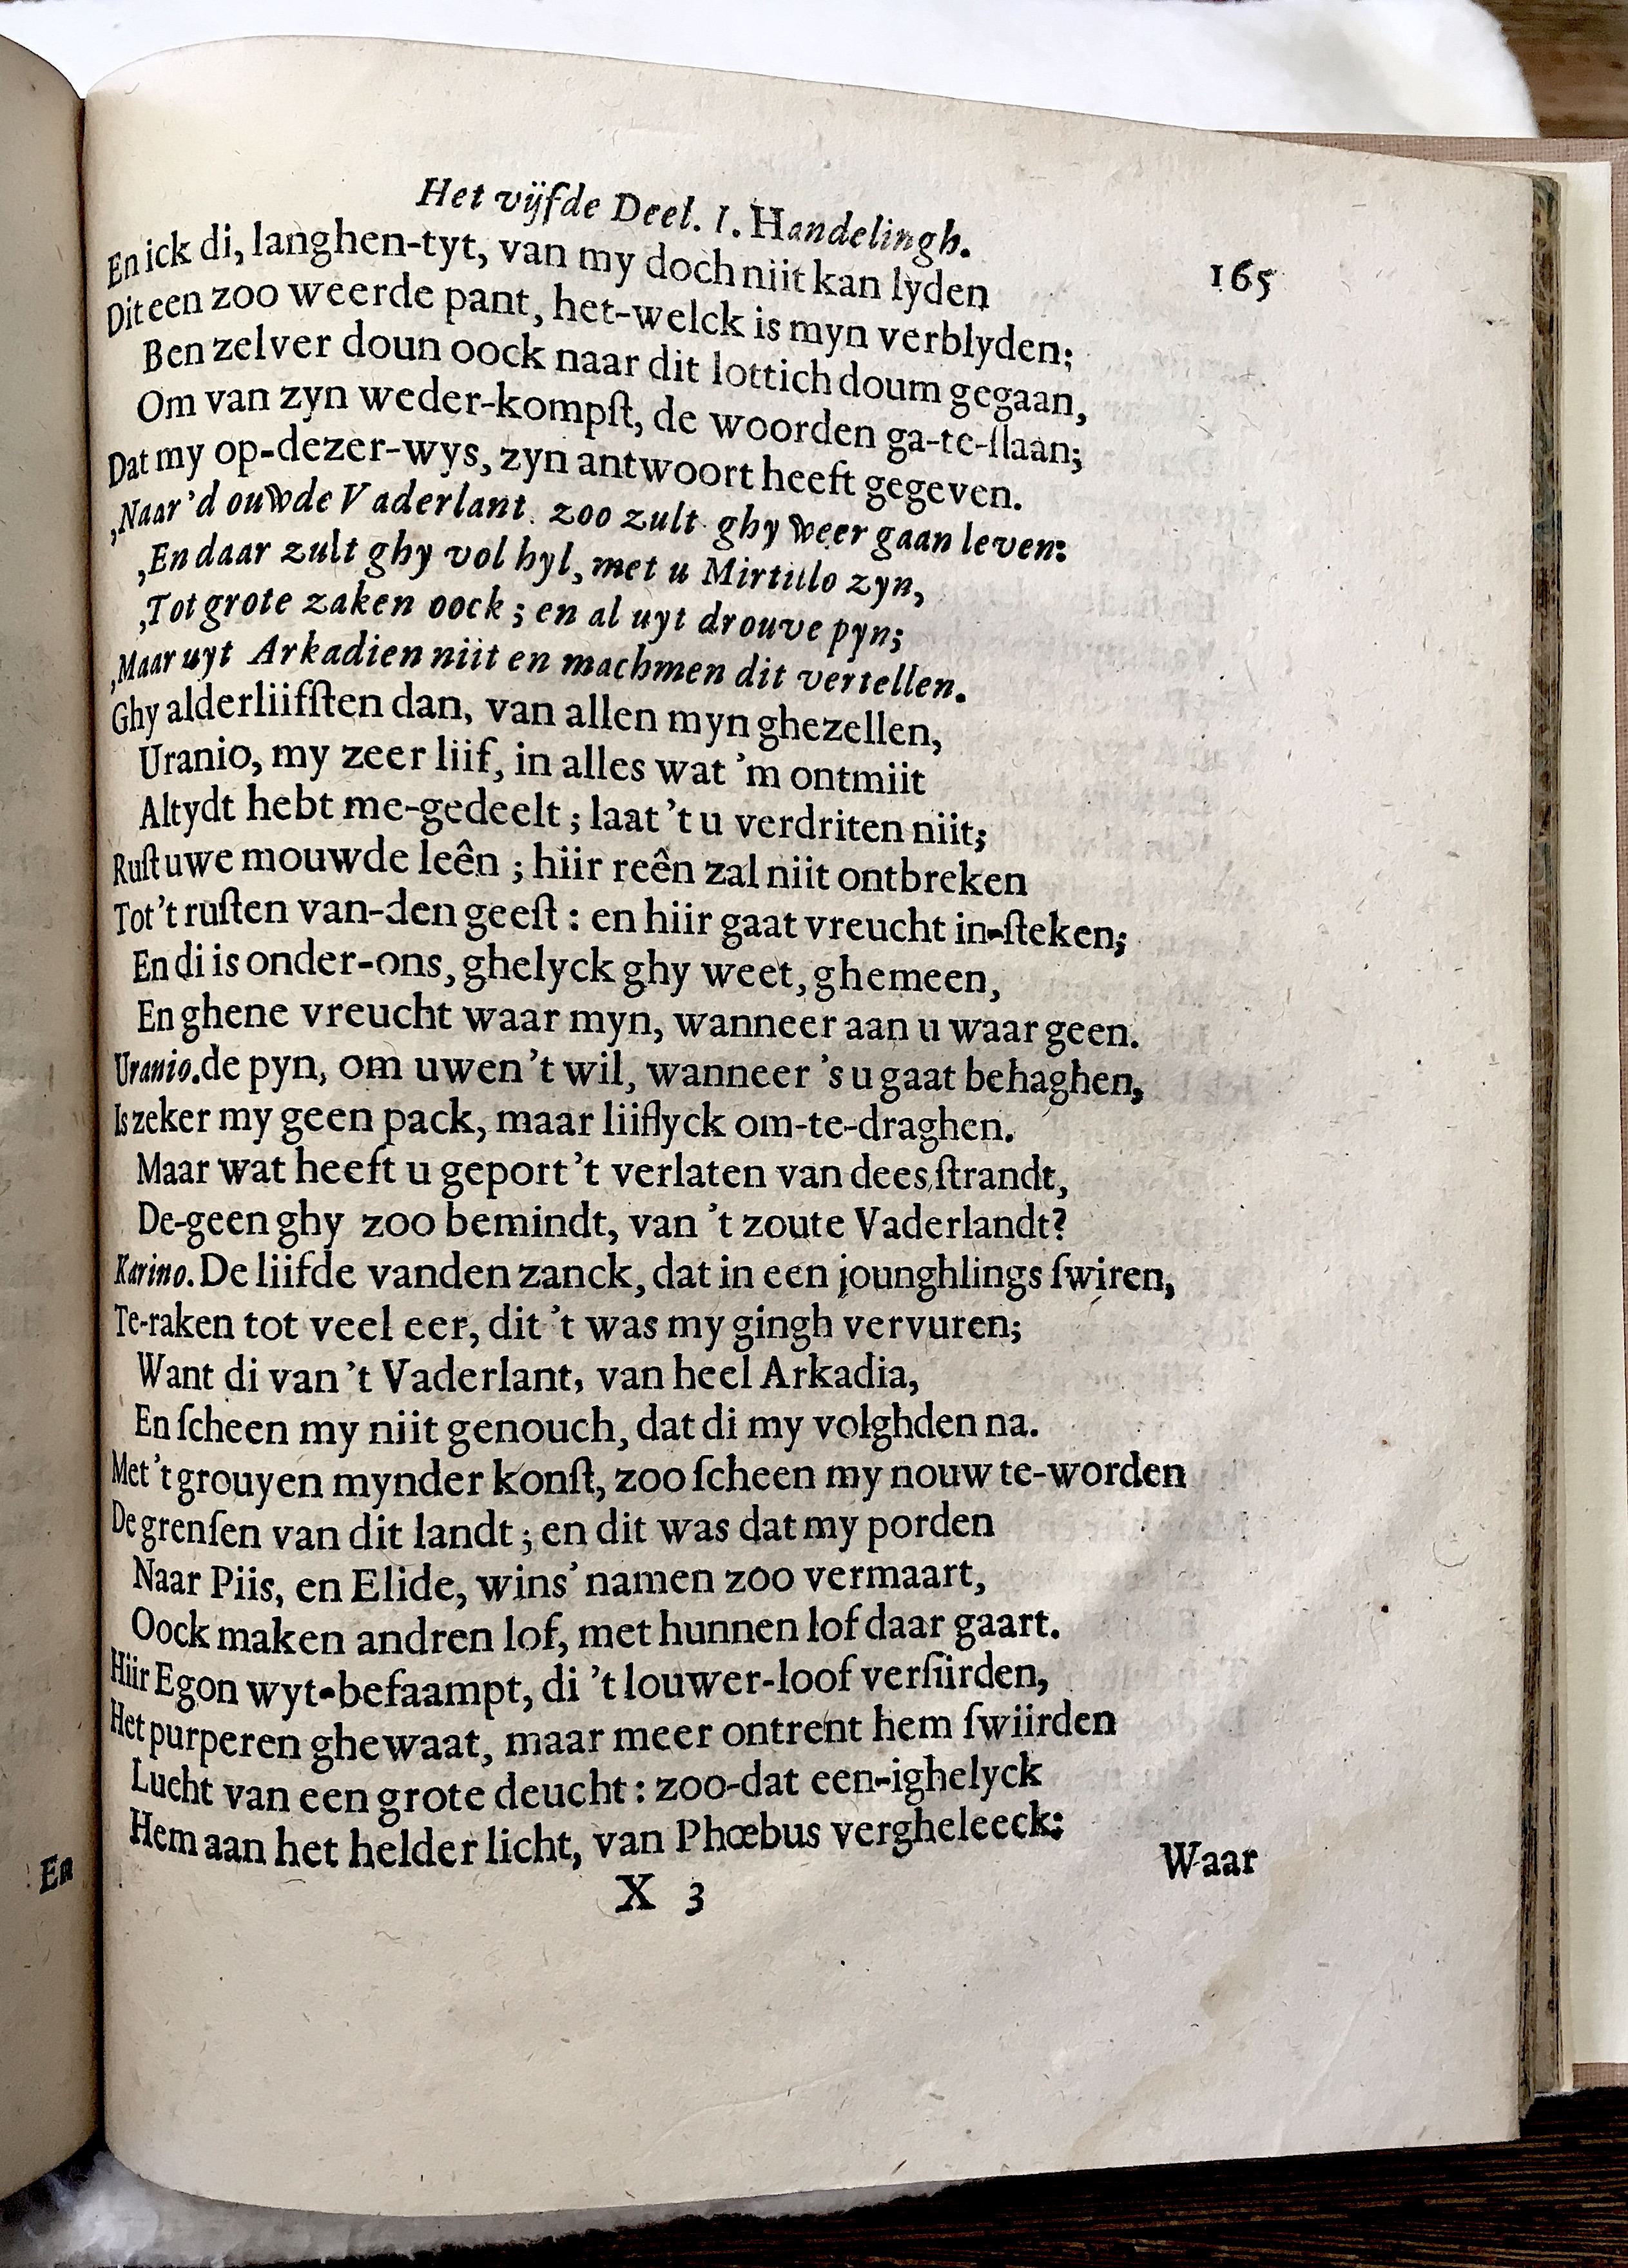 Het vijfde Deel. I. Handelingh. 165
En ick di, langhen-tyt, van my doch niit kan lyden
Dit een zoo weerde pant, het-welck is myn verblyden;
Ben zelver doun oock naar dit lottich doum gegaan,
Om van zyn weder-kompſt, de woorden ga-te-ſlaan;
Dat my op-dezer-wys, zyn antwoort heeft gegeven.
,Naar 'd ouwde Vaderlant. zoo zult ghy weer gaan leven:
,En daar zult ghy vol hyl, met u Mirtillo zyn,
,Tot grote zaken oock; en al uyt drouve pyn;
,Maar uyt Arkadien niit en machmen dit vertellen.
Ghy alderliifſten dan, van allen myn ghezellen,
Uranio, my zeer liif, in alles wat 'm ontmiit
Altydt hebt me-gedeelt; laat 't u verdriten niit;
Ruſt uwe mouwde leên; hiir reên zal niit ontbreken
Tot 't ruſten van-den geeſt: en hiir gaat vreucht in-ſteken;
En di is onder-ons, ghelyck ghy weet, ghemeen,
En ghene vreucht waar myn, wanneer aan u waar geen.
Uranio. de pyn, om uwen 't wil, wanneer 's u gaat behaghen,
Is zeker my geen pack, maar liiflyck om-te-draghen.
Maar wat heeft u geport 't verlaten van dees ſtrandt,
De-geen ghy zoo bemindt, van 't zoute Vaderlandt?
Karino. De liifde vanden zanck, dat in een jounghlings ſwiren,
Te-raken tot veel eer, dit 't was my gingh vervuren;
Want di van 't Vaderlant, van heel Arkadia,
En ſcheen my niit genouch, dat di my volghden na.
Met 't grouyen mynder konſt, zoo ſcheen my nouw te-worden
De grenſen van dit landt; en dit was dat my porden
Naar Piis, en Elide, wins' namen zoo vermaart,
Oock maken andren lof, met hunnen lof daar gaart.
Hiir Egon wyt-befaampt, di 't louwer-loof verſiirden,
Het purperen ghewaat, maar meer ontrent hem ſwiirden
Lucht van een grote deucht: zoo-dat een-ighelyck
Hem aan het helder licht, van Phœbus vergheleeck:
X 3 Waar
En